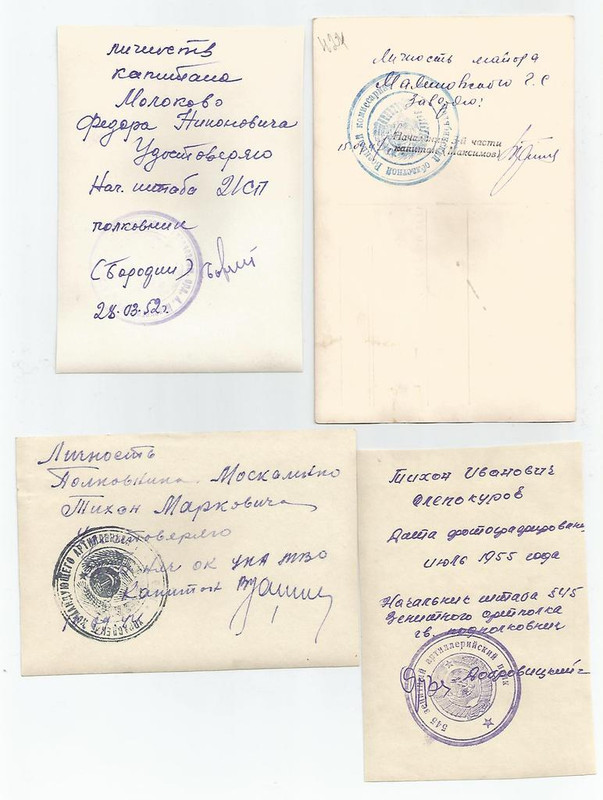 личность
капитана
Молоково
Федора Никоновича
Удостоверяю
Нач. штаба 21СП
полковник
(Бородин)
28.03.52г.
Личность майора
Малиновского Г.С
Заверяю:
Начальник 3-й части
капитан Максимов
областной Военный комиссариат
Личность
Полковника Москаленко
Тихон Марковича
Удостоверяю
Нач ОК УКА МВО
Капитан
КОМАНДУЮЩЕГО АРТИЛЛЕРИЕЙ
Тихон Иванович
Слепокуров
Дата фотографирован
июль 1955 года
Начальник штаба 545
зенитного артполка
гв. подполковник
Добровицкий
545 зенитный артиллерийский полк